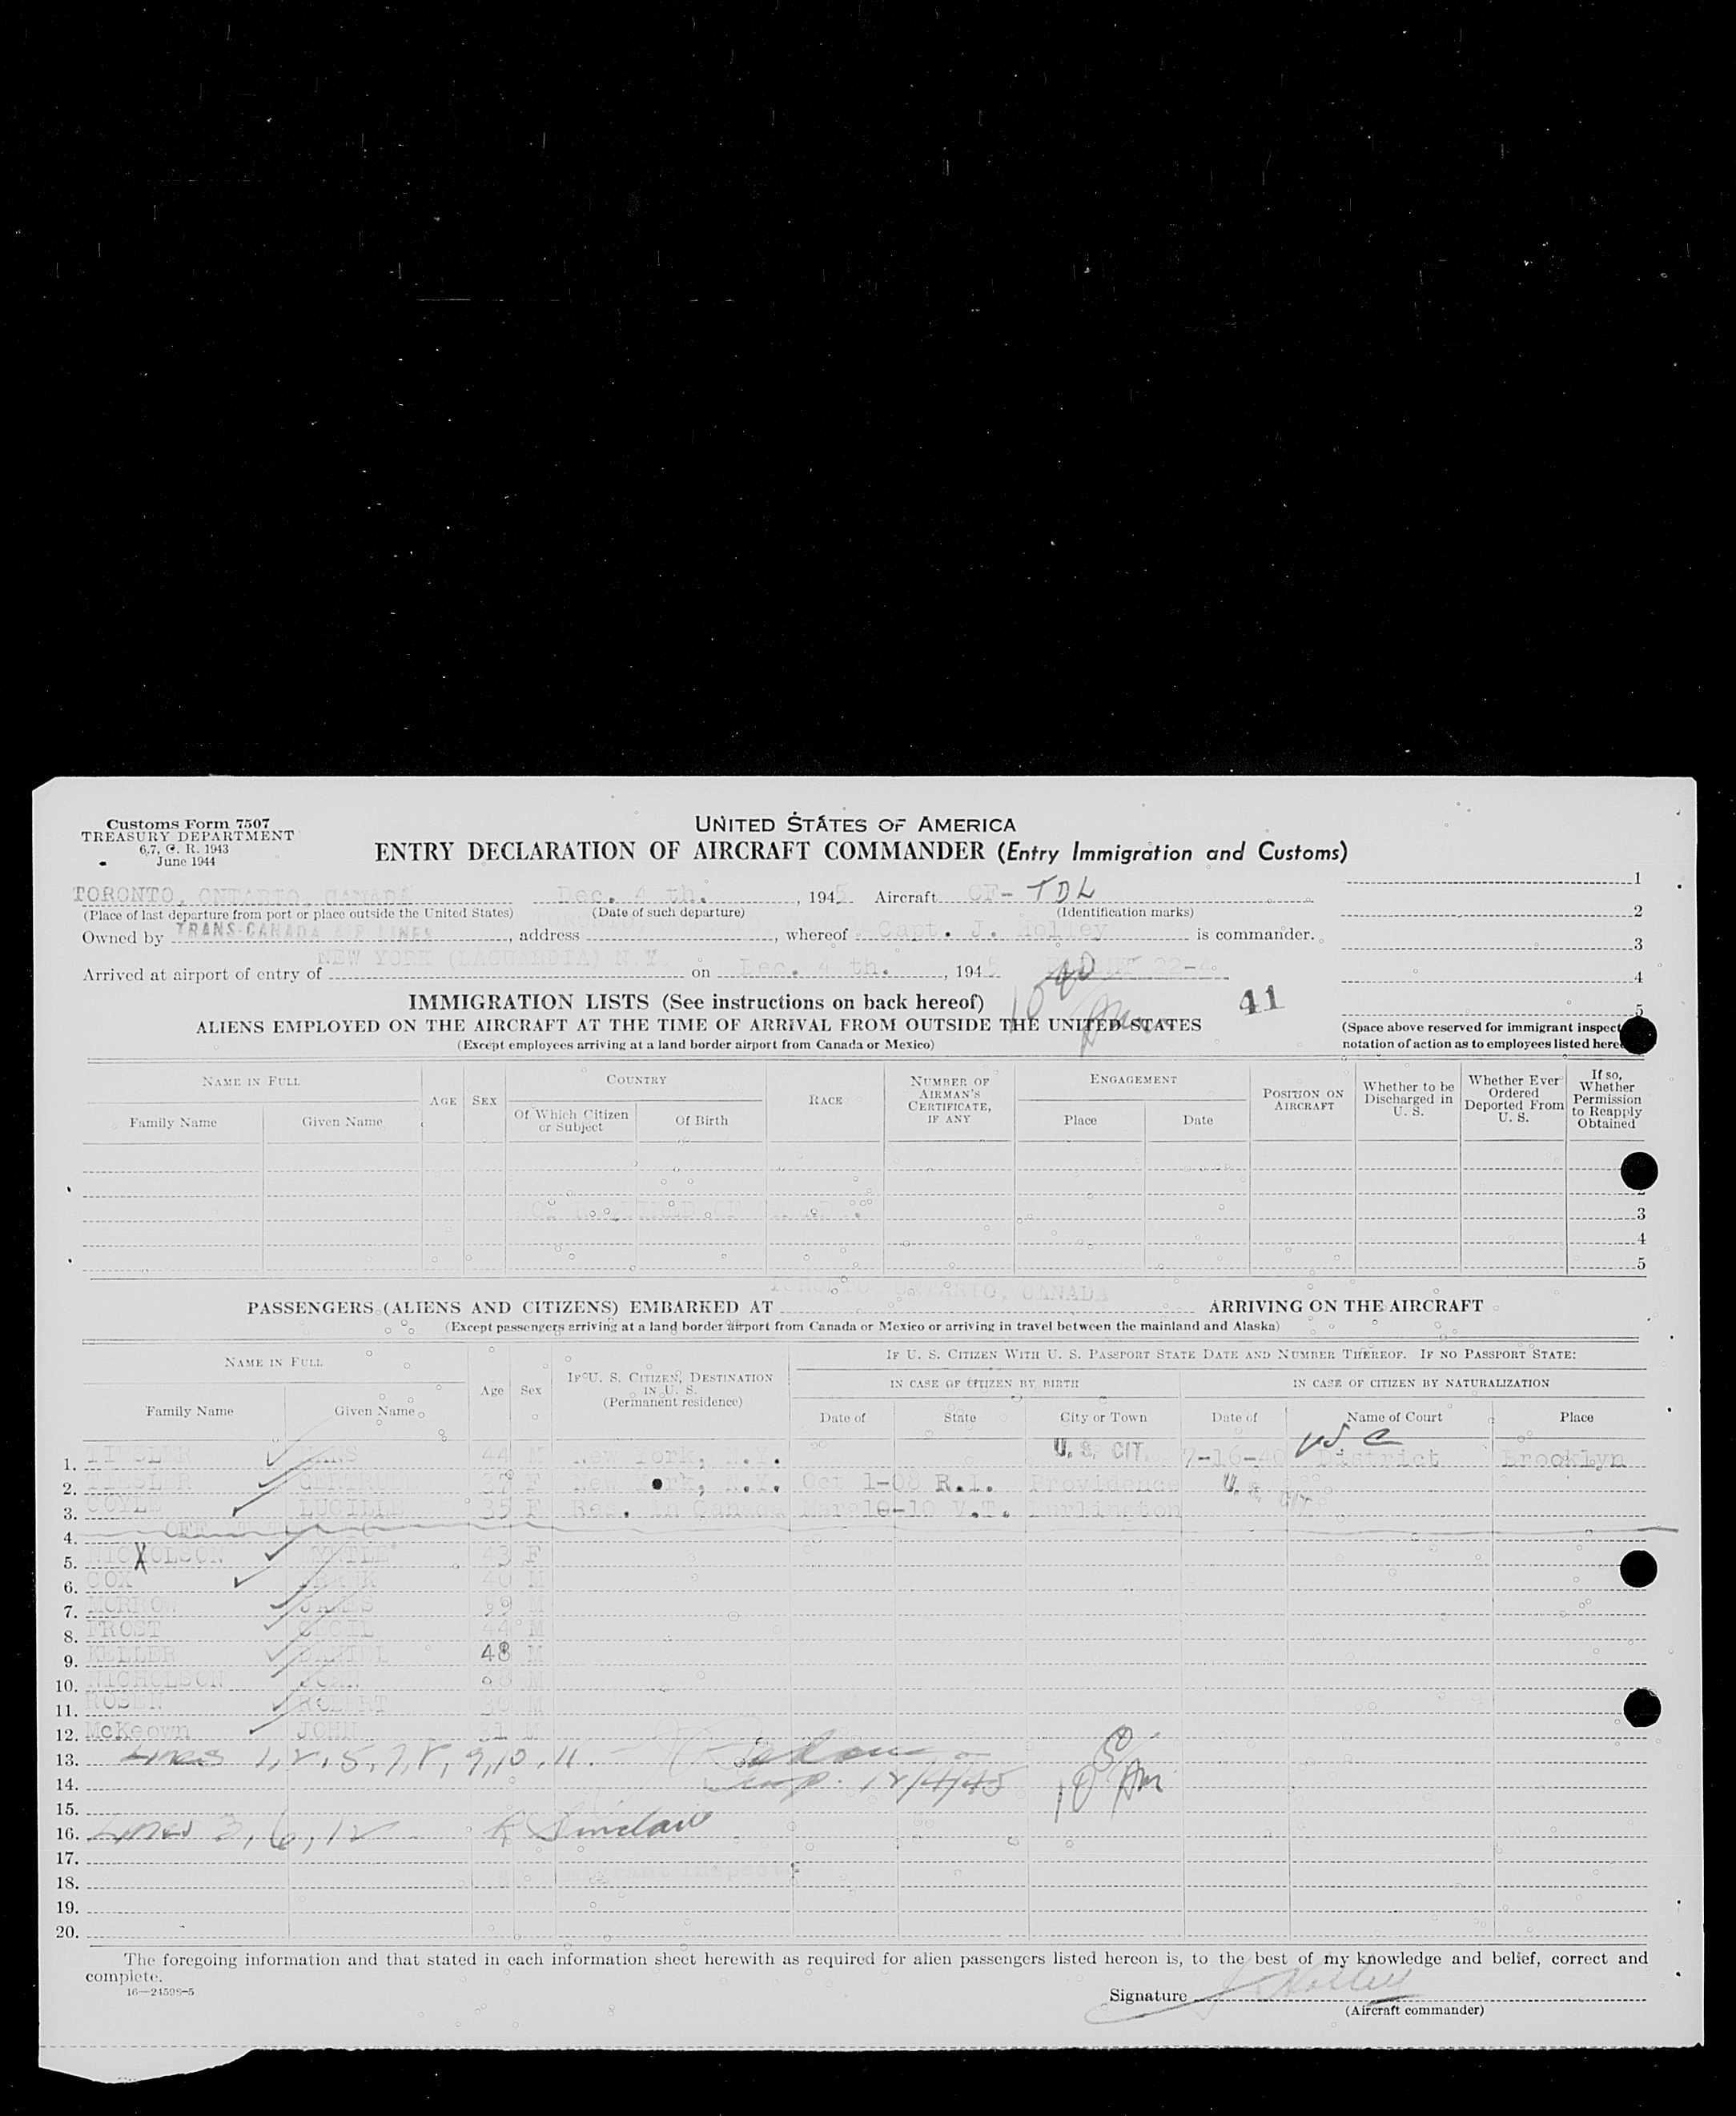 Customs Form 7507
TREASURY DEPARTMENT
6.7, C. R. 1943
June 1944
UNITED STATES OF AMERICA
ENTRY DECLARATION OF AIRCRAFT COMMANDER (Entry Immigration and Customs)
TORONTO, ONTARIO, CANADA Dec. 4 th. , 1945 Aircraft CF- TDL 1
(Place of last departure from port or place outside the United States) (Date of such departure) (Identification marks) 2
Owned by TRANS-CANADA AIR LINES , address TORONTO, , whereof Capt. J. Holley is commander. 3
Arrived at airport of entry of NEW YORK (LAGUARDIA) N.Y. on Dec. 4 th. , 1945 22-4 4
IMMIGRATION LISTS (See instructions on back hereof) 10 40 AM 41 5
ALIENS EMPLOYED ON THE AIRCRAFT AT THE TIME OF ARRIVAL FROM OUTSIDE THE UNITED STATES
(Except employees arriving at a land border airport from Canada or Mexico)
(Space above reserved for immigrant inspect
notation of action as to employees listed here
NAME IN FULL
Family Name Given Name
AGE SEX
COUNTRY
Of Which Citizen or Subject Of Birth
RACE
NUMBER OF AIRMAN'S CERTIFICATE, IF ANY
ENGAGEMENT
Place Date
POSITION ON AIRCRAFT
Whether to be Discharged in U. S.
Whether Ever Ordered Deported From U. S.
If so, Whether Permission to Reapply Obtained
3
4
5
TORONTO, ONTARIO, CANADA
PASSENGERS (ALIENS AND CITIZENS) EMBARKED AT ARRIVING ON THE AIRCRAFT
(Except passengers arriving at a land border airport from Canada or Mexico or arriving in travel between the mainland and Alaska)
NAME IN FULL
Family Name Given Name
Age Sex
IF U. S. CITIZEN, DESTINATION IN U. S. (Permanent residence)
IF U. S. CITIZEN WITH U. S. PASSPORT STATE DATE AND NUMBER THEREOF. IF NO PASSPORT STATE:
IN CASE OF CITIZEN BY BIRTH IN CASE OF CITIZEN BY NATURALIZATION
Date of State City or Town Date of Name of Court Place
1. HANS 44 M New York, N.Y. U. S. CIT. 7-16-40 USC District Brooklyn
2. GERTRUD 37 F New York, N.Y. Oct 1-08 R.I. Providence U. S. CIT.
3. COYLE LUCILLE 35 F Res. in Canada 10-10 V.T. Burlington
4.
5. NICHOLSON MYRTLE 43 F
6. COX FRANK 40 M
7. MORROW JAMES 59 M
8. FROST CECIL 44 M
9. KELLER DANIEL 48 M
10. NICHOLSON JOHN M
11. ROSEN ROBERT 30 M
12. McKeown JOHN 31 M
13. Lines 1, 2, 5, 7, 8, 9, 10, 11.
14. Insp. 12/4/45 10 AM
15.
16. Lines 3, 6, 12 R Sinclair
17.
18. Immigrant Inspector
19.
20.
The foregoing information and that stated in each information sheet herewith as required for alien passengers listed hereon is, to the best of my knowledge and belief, correct and
complete.
16—24598-5
Signature J Holley
(Aircraft commander)